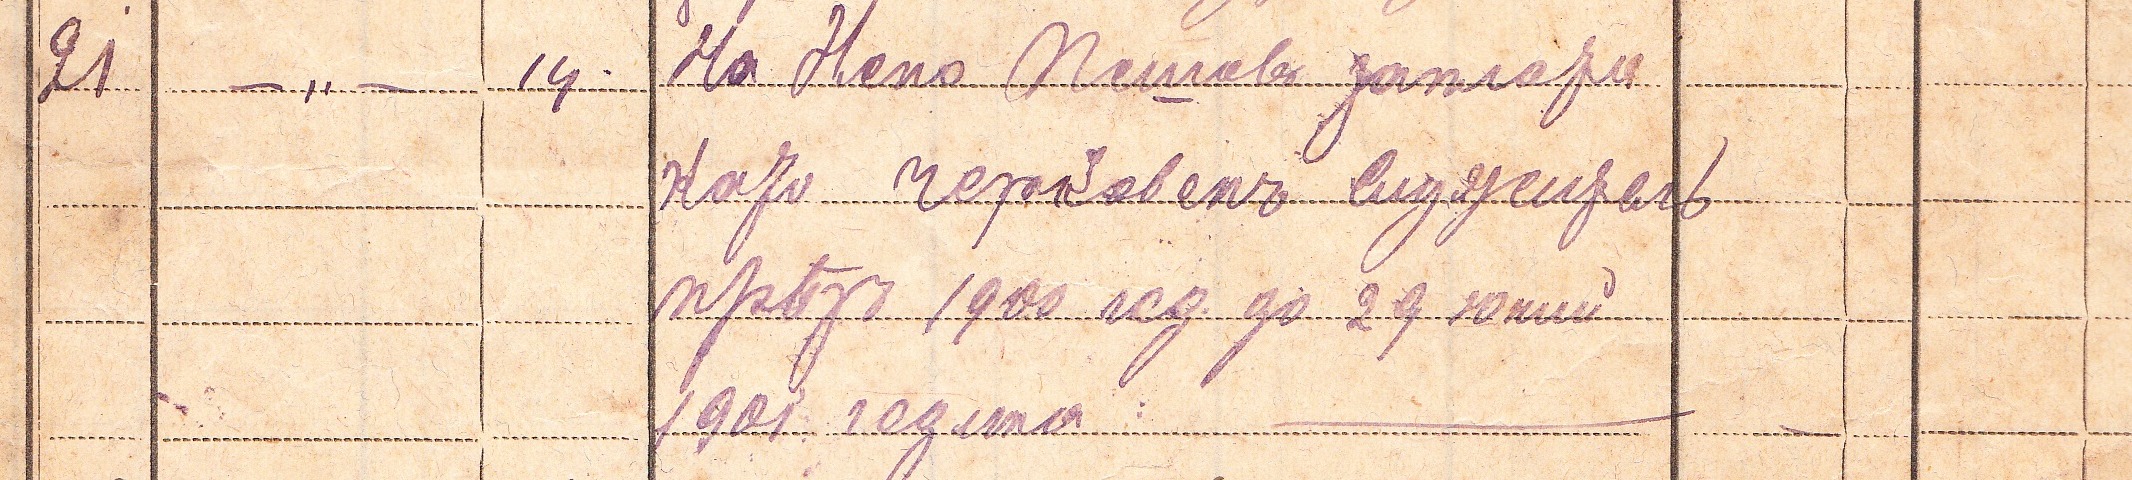 21 — „ — 14. На Нено Пешовъ заплати
като черковенъ служитель
прѣзъ 1900 год. до 29 юний
1901 год.